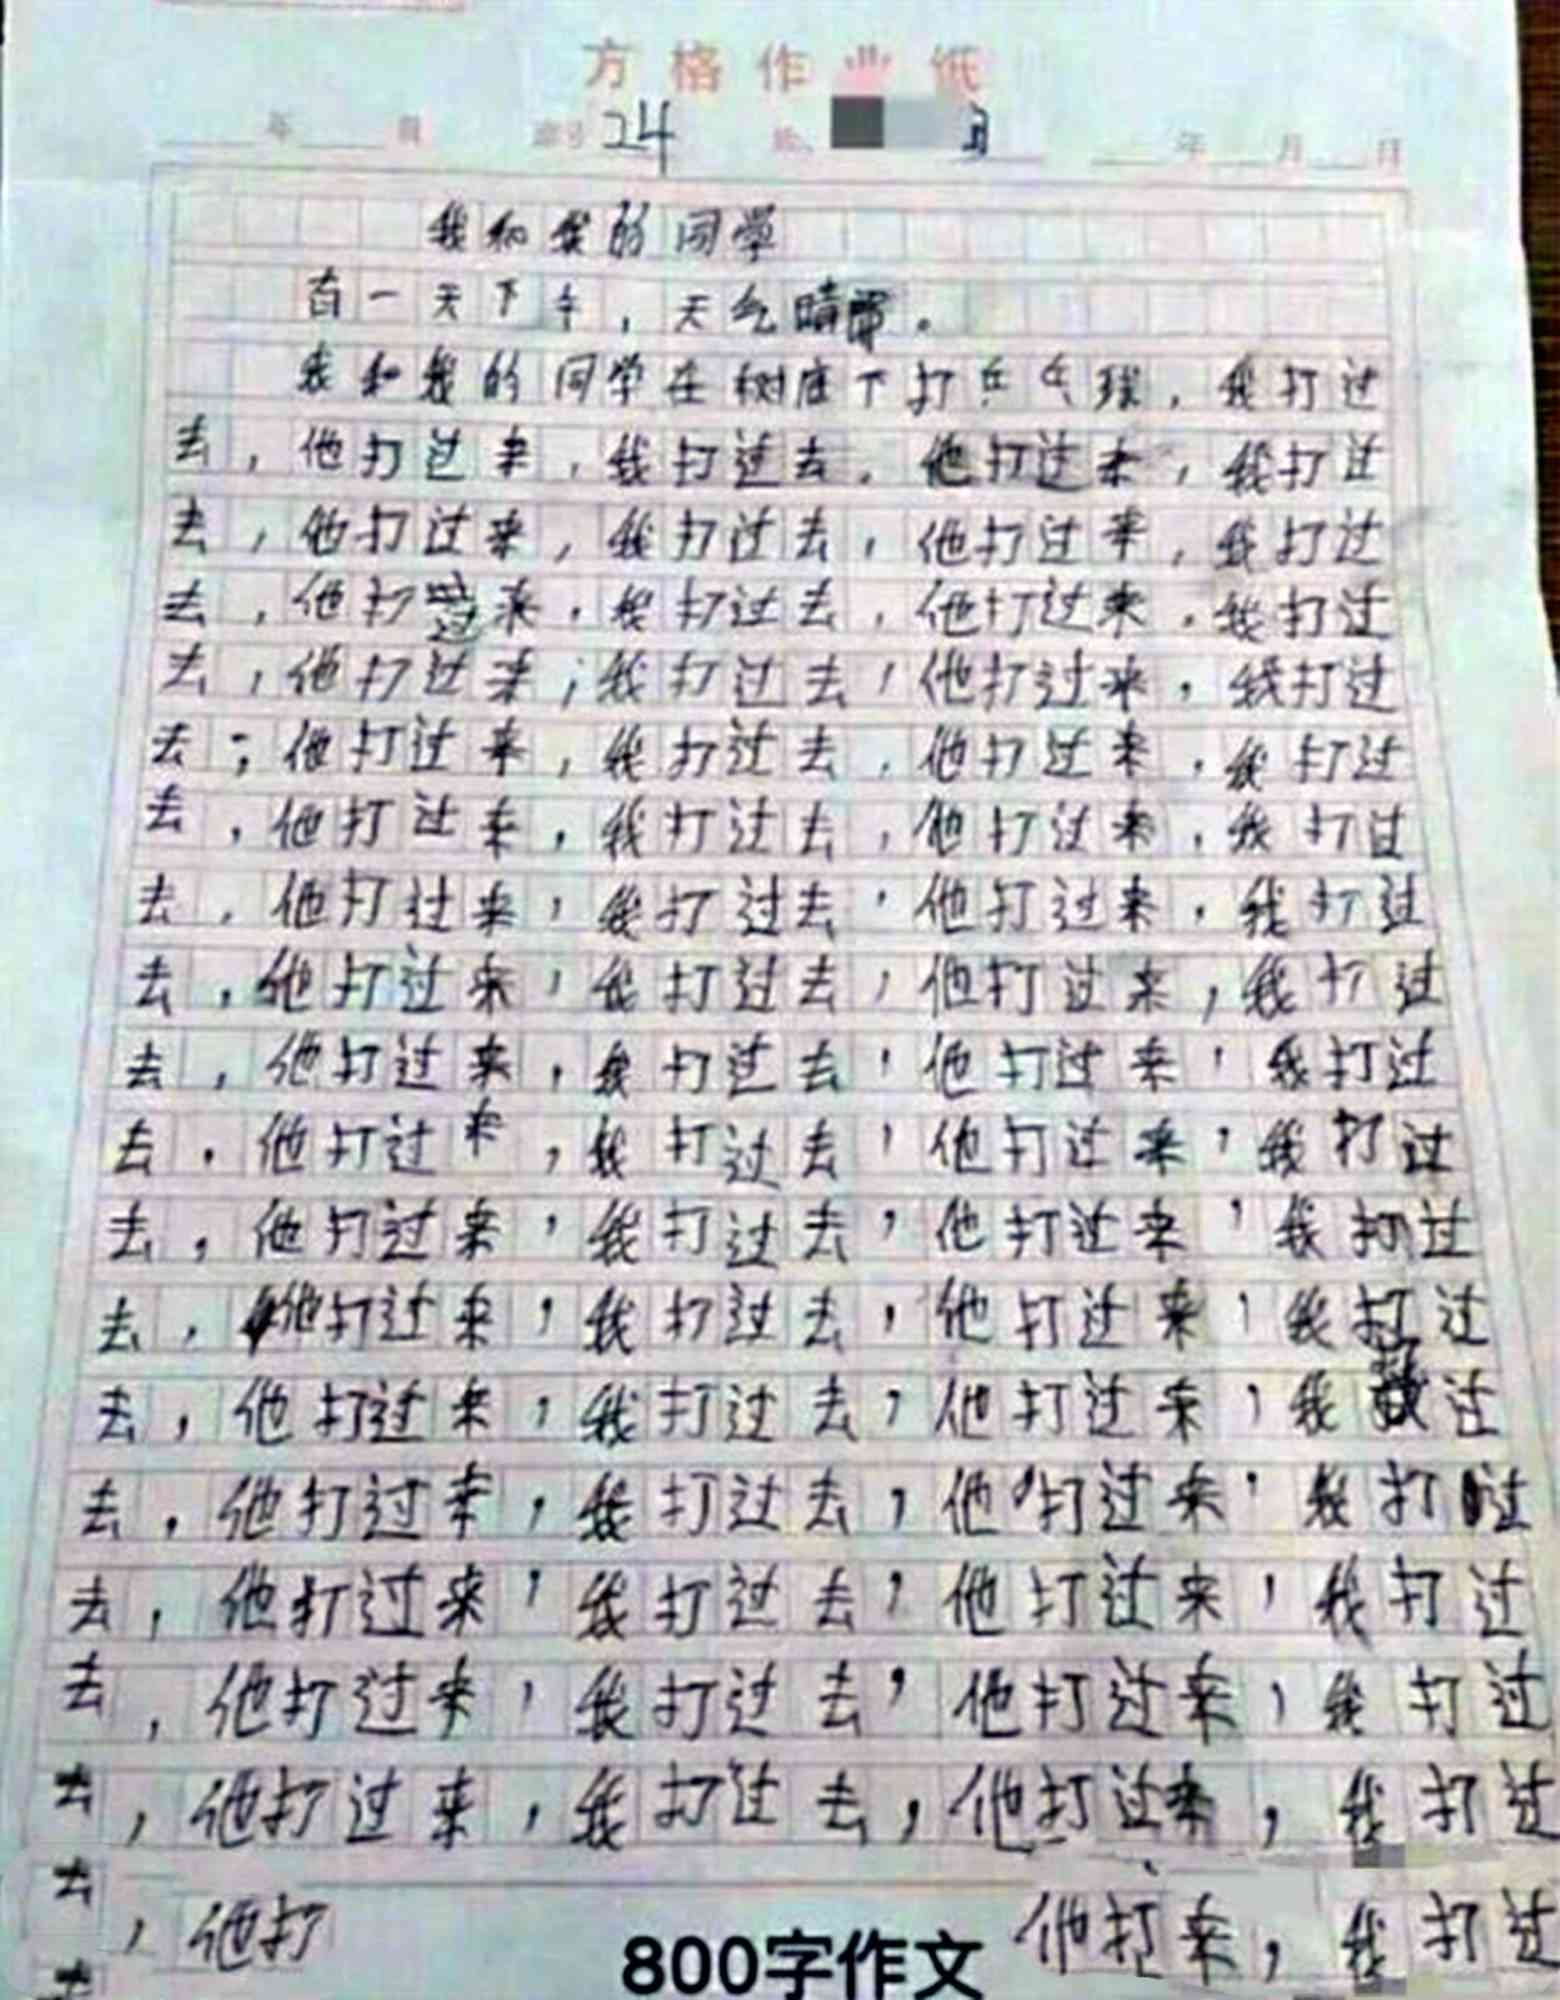 方格作业纸
年 月 24 年 月 日
我和我的同学
有一天下午，天气晴朗。
我和我的同学在树底下打乒乓球，我打过
去，他打过来，我打过去，他打过来，我打过
去，他打过来，我打过去，他打过来，我打过
去，他打过来，我打过去，他打过来，我打过
去，他打过来；我打过去，他打过来，我打过
去；他打过来，我打过去，他打过来，我打过
去，他打过来，我打过去，他打过来，我打过
去，他打过来，我打过去，他打过来，我打过
去，他打过来，我打过去，他打过来，我打过
去，他打过来，我打过去，他打过来，我打过
去，他打过来，我打过去，他打过来，我打过
去，他打过来，我打过去，他打过来，我打过
去，他打过来，我打过去，他打过来，我打过
去，他打过来，我打过去，他打过来，我过
去，他打过来，我打过去，他打过来，我打过
去，他打过来，我打过去，他打过来，我打过
去，他打过来，我打过去，他打过来，我打过
去，他打过来，我打过去，他打过来，我打过
去，他打 他打来，我打过
800字作文